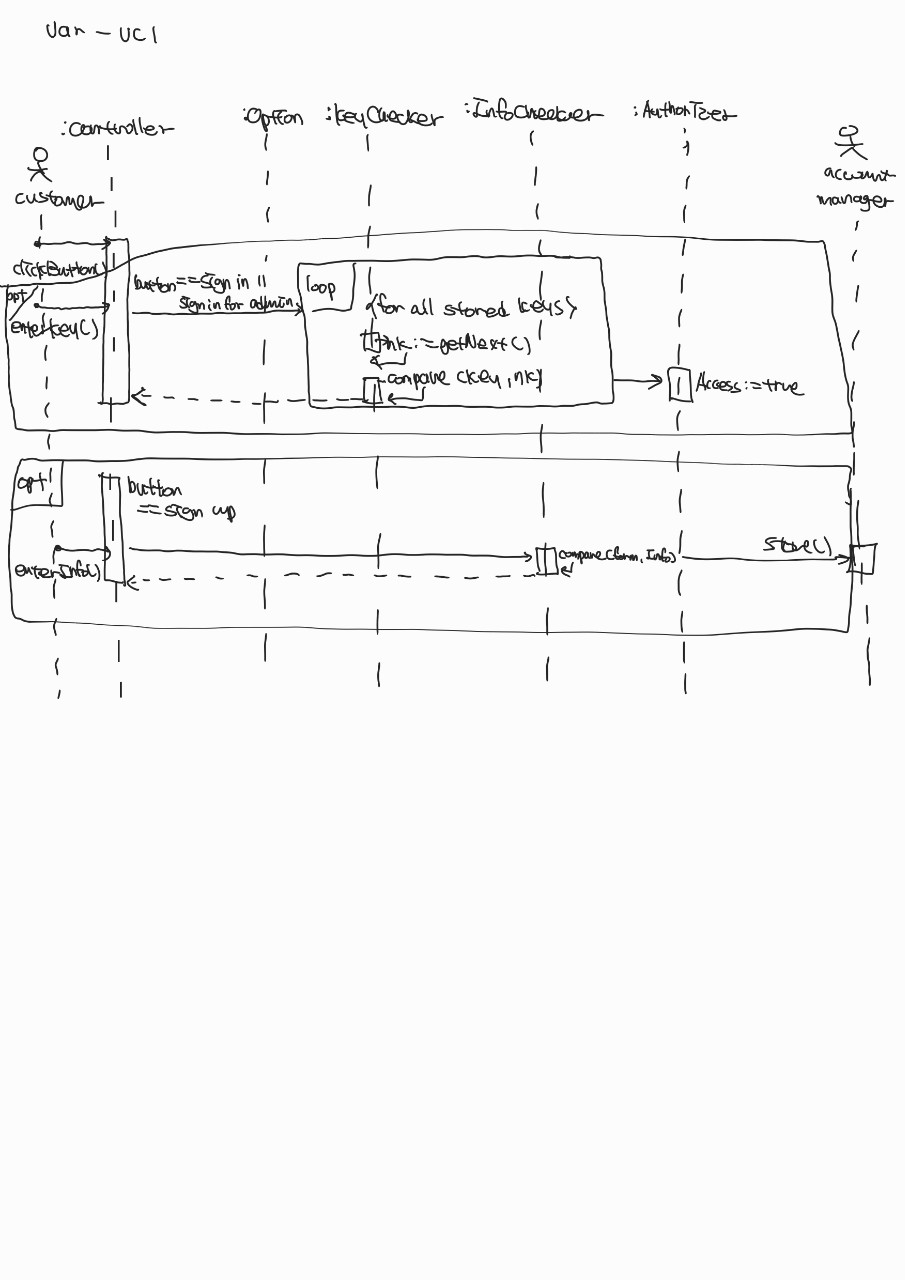 Var - UC1
:controller
:Option
:KeyChecker
:InfoChecker
:Authorizer
customer
account
manager
clickButton()
opt
enterkey()
button==sign in ||
sign in for admin
loop
{for all stored keys}
nk:=getNext()
compare (key, nk)
Access:=true
opt
button
==sign up
enterInfo()
compare(form, Info)
store()